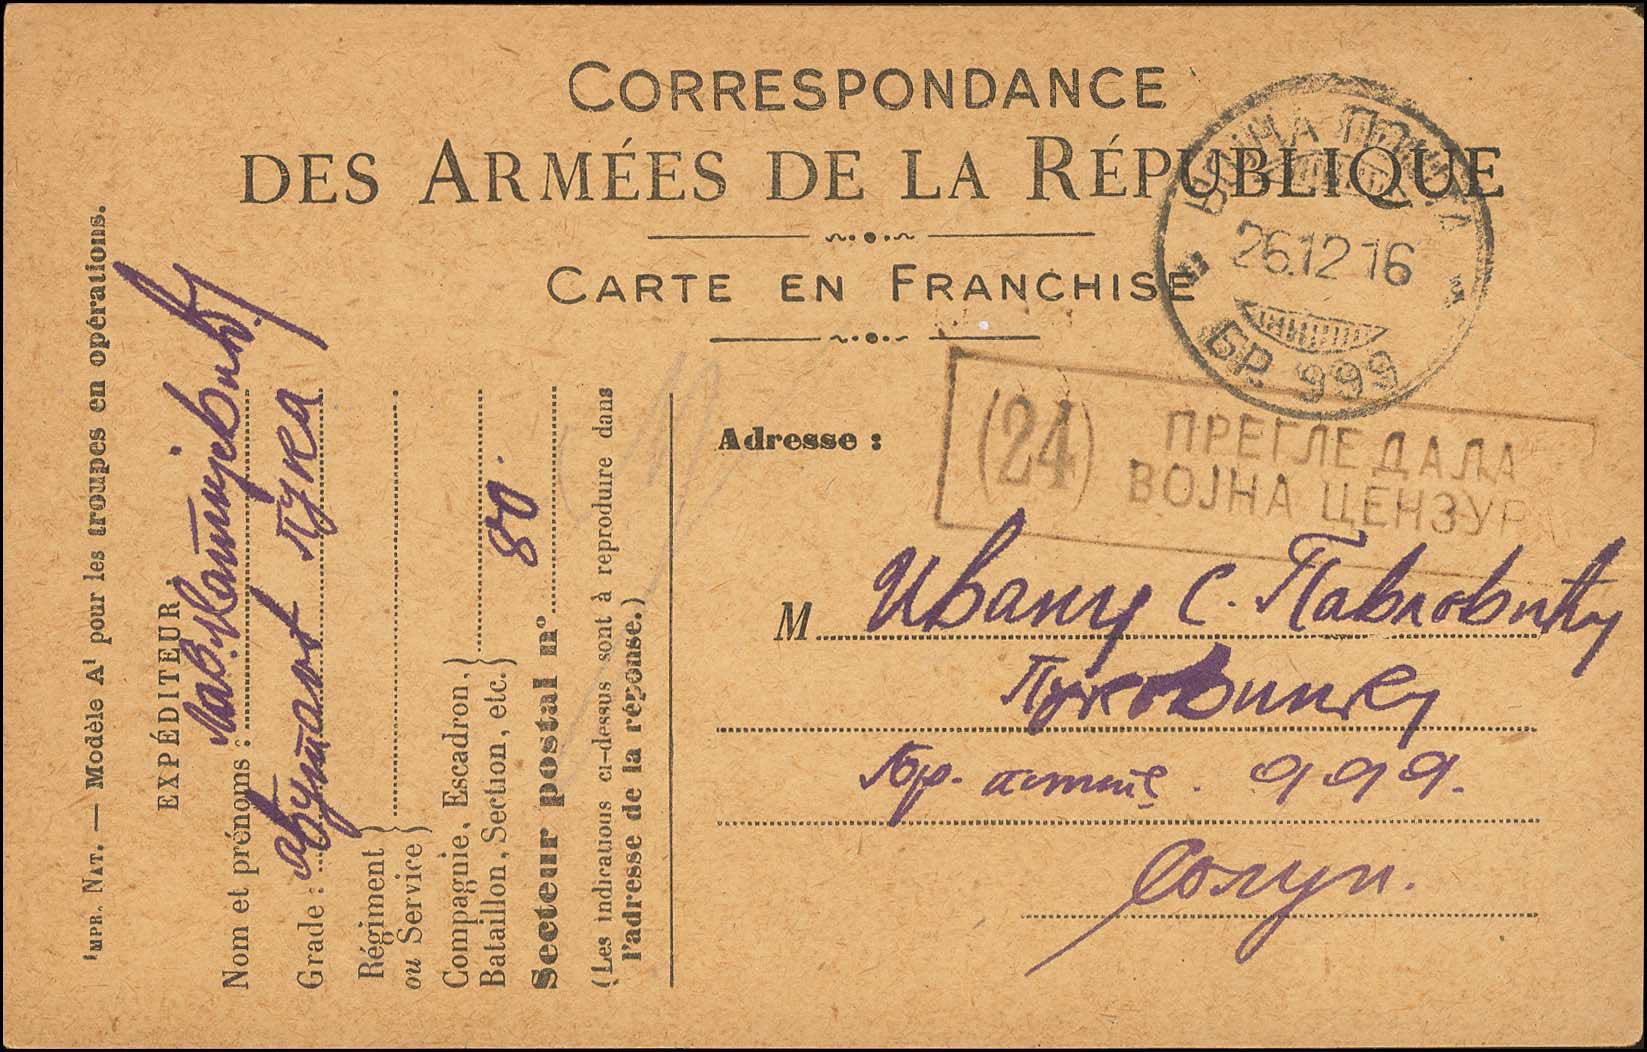 CORRESPONDANCE
DES ARMÉES DE LA RÉPUBLIQUE
CARTE EN FRANCHISE
ВОЈНА ПОШТА
26.12 16
БР. 999
(24) ПРЕГЛЕДАЛА
ВОЈНА ЦЕНЗУР
Adresse :
M Ивану С. Павловићу
Пуковнику
Бр. поште. 999.
Солун.
IMPR. NAT. — Modèle A¹ pour les troupes en opérations.
EXPÉDITEUR
Nom et prénoms :
Grade :
Régiment
ou Service
Compagnie, Escadron,
Bataillon, Section, etc.
80.
Secteur postal n°
(Les indications ci-dessus sont à reproduire dans
l'adresse de la réponse.)